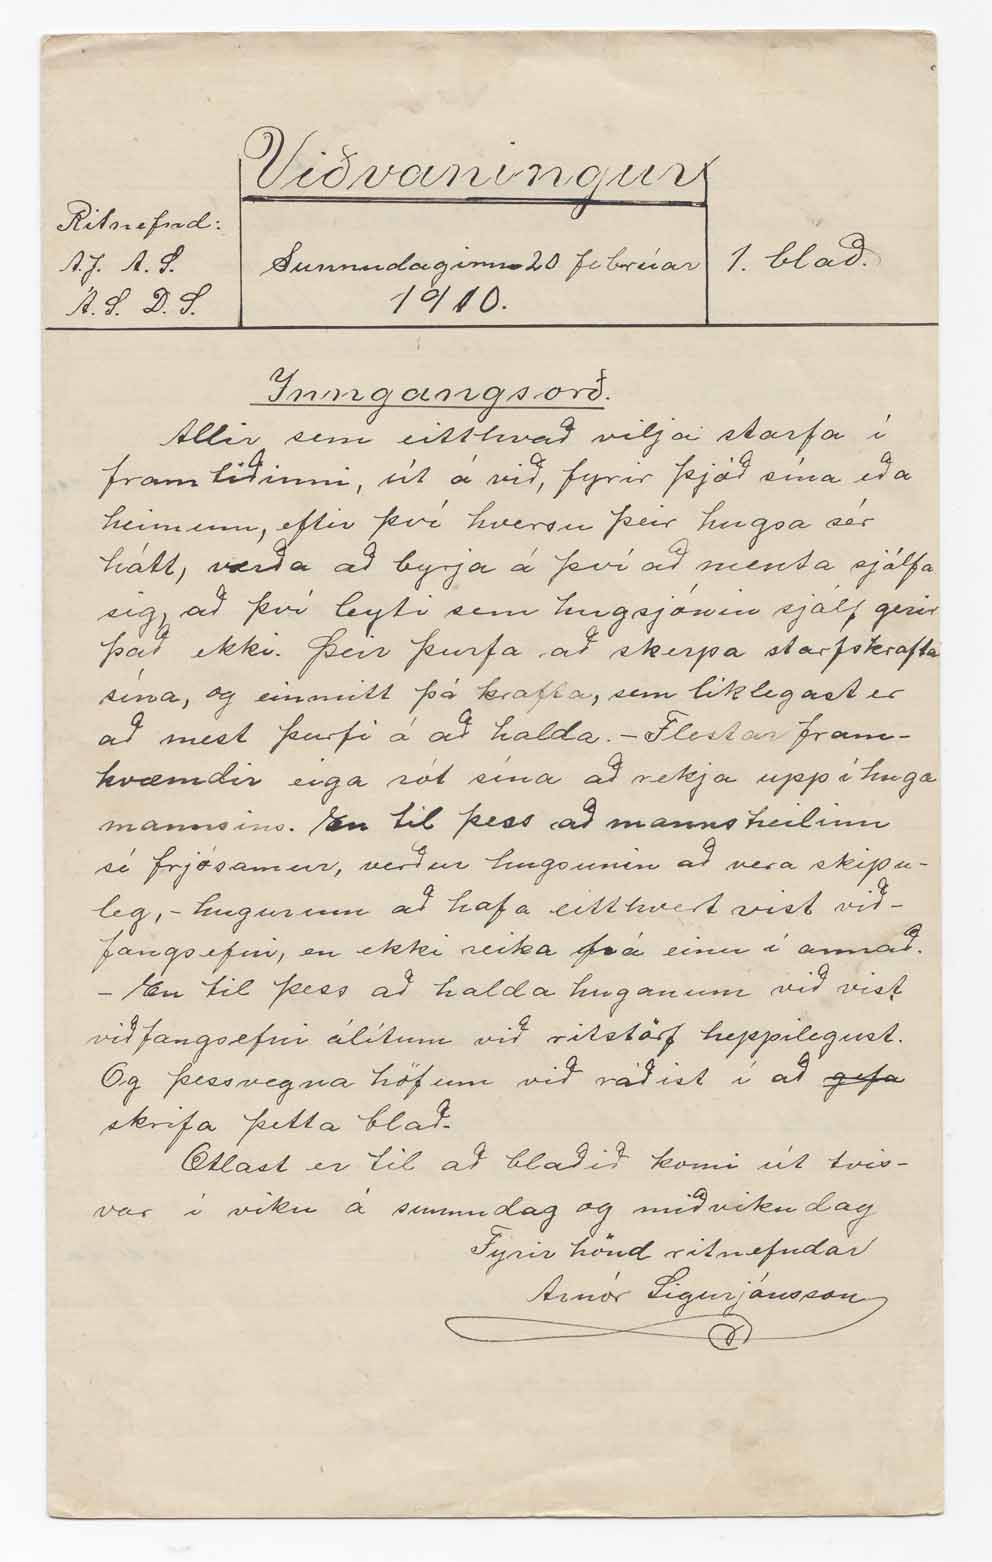 Viðvaningur
Ritnefnd:
A.J. A.S.
Á.S. D.S.
Sunnudaginn 20 febrúar
1910.
1. blað.
Inngangsorð.
Allir sem eitthvað vilja starfa í
framtíðinni, út á við, fyrir þjóð sína eða
heiminn, eftir því hversu þeir hugsa sér
hátt, verða að byrja á því að menta sjálfa
sig, að því leyti sem hugsjónin sjálf gerir
það ekki. Þeir þurfa að skerpa starfskrafta
sína, og einmitt þá krafta, sem líklegast er
að mest þurfi á að halda. – Flestar fram-
kvæmdir eiga rót sína að rekja upp í huga
mannsins. En til þess að mannsheilinn
sé frjósamur, verður hugsunin að vera skipu-
leg, – hugurinn að hafa eitthvert vist við-
fangsefni, en ekki reika frá einu í annað.
– En til þess að halda huganum við vist
viðfangsefni álítum við ritstörf heppilegust.
Og þessvegna höfum við ráðist í að gefa
skrifa þetta blað.
Ætlast er til að blaðið komi út tvis-
var í viku á sunnudag og miðvikudag
Fyrir hönd ritnefndar
Arnór Sigurjónsson